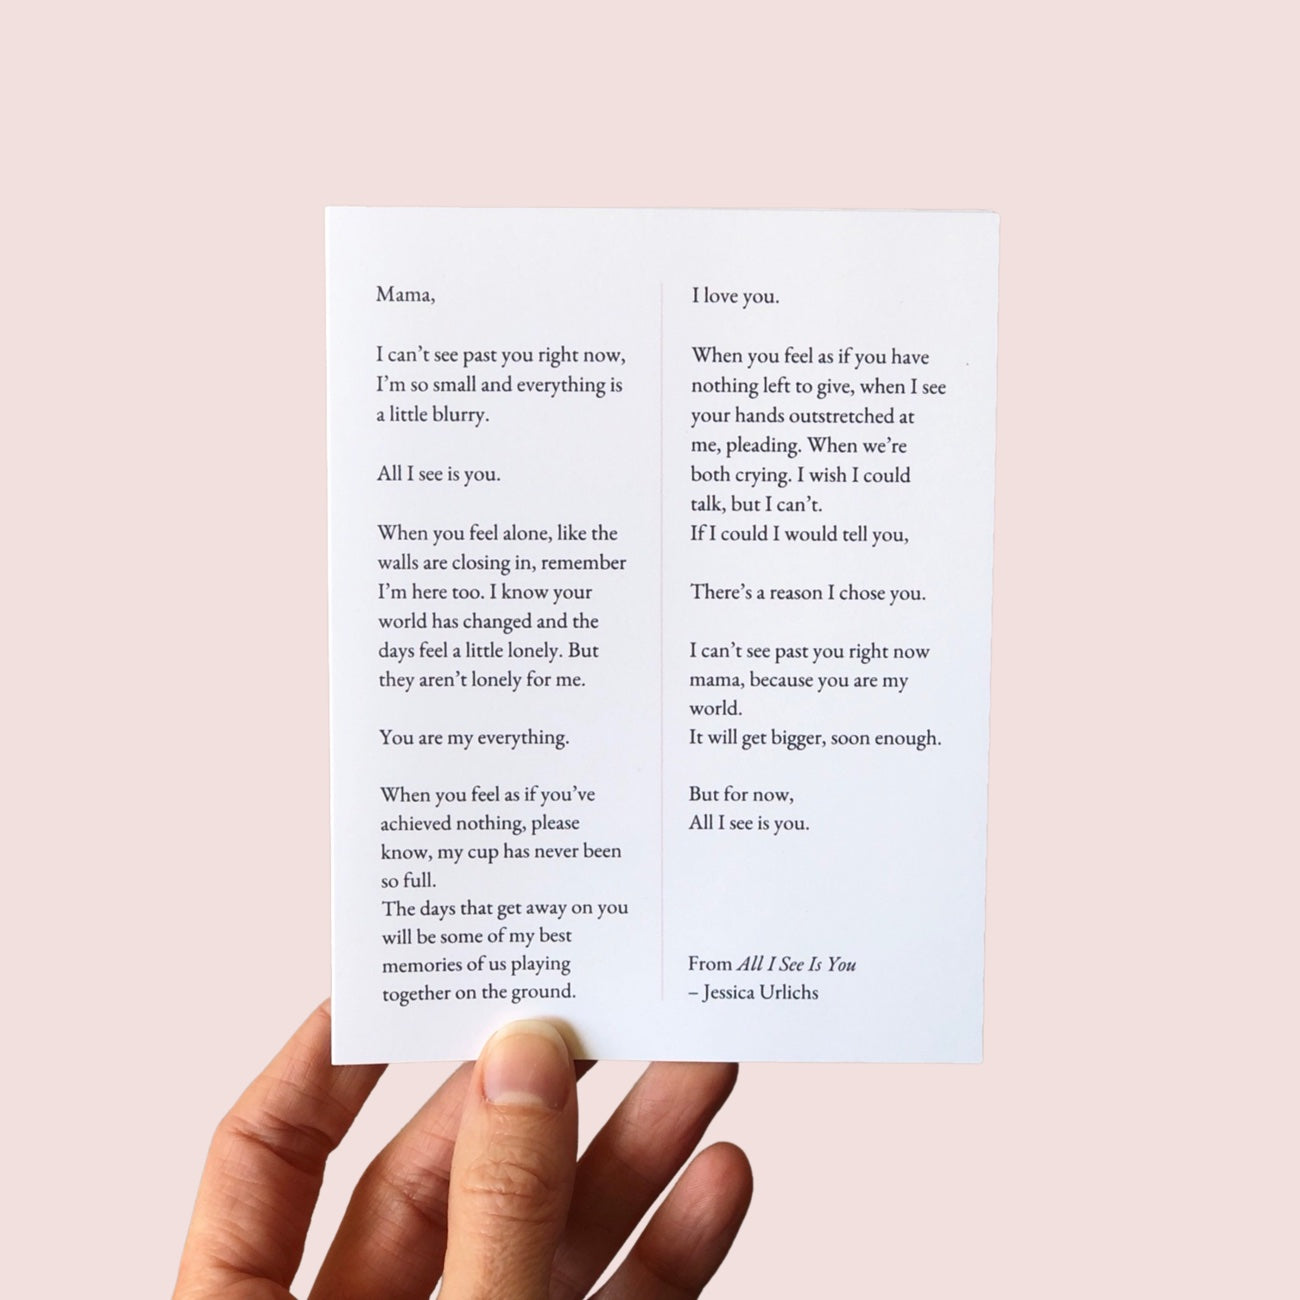 Mama,
I can't see past you right now,
I'm so small and everything is
a little blurry.
All I see is you.
When you feel alone, like the
walls are closing in, remember
I'm here too. I know your
world has changed and the
days feel a little lonely. But
they aren't lonely for me.
You are my everything.
When you feel as if you've
achieved nothing, please
know, my cup has never been
so full.
The days that get away on you
will be some of my best
memories of us playing
together on the ground.
I love you.
When you feel as if you have
nothing left to give, when I see
your hands outstretched at
me, pleading. When we're
both crying. I wish I could
talk, but I can't.
If I could I would tell you,
There's a reason I chose you.
I can't see past you right now
mama, because you are my
world.
It will get bigger, soon enough.
But for now,
All I see is you.
From All I See Is You
– Jessica Urlichs